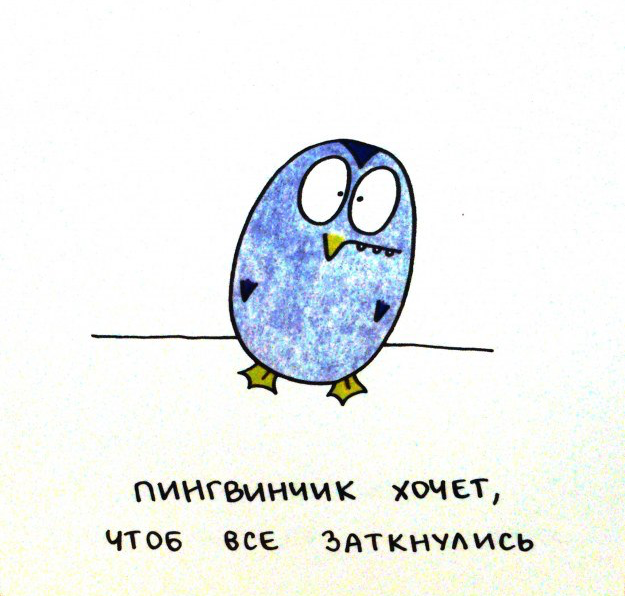 ПИНГВИНЧИК ХОЧЕТ,
ЧТОБ ВСЕ ЗАТКНУЛИСЬ